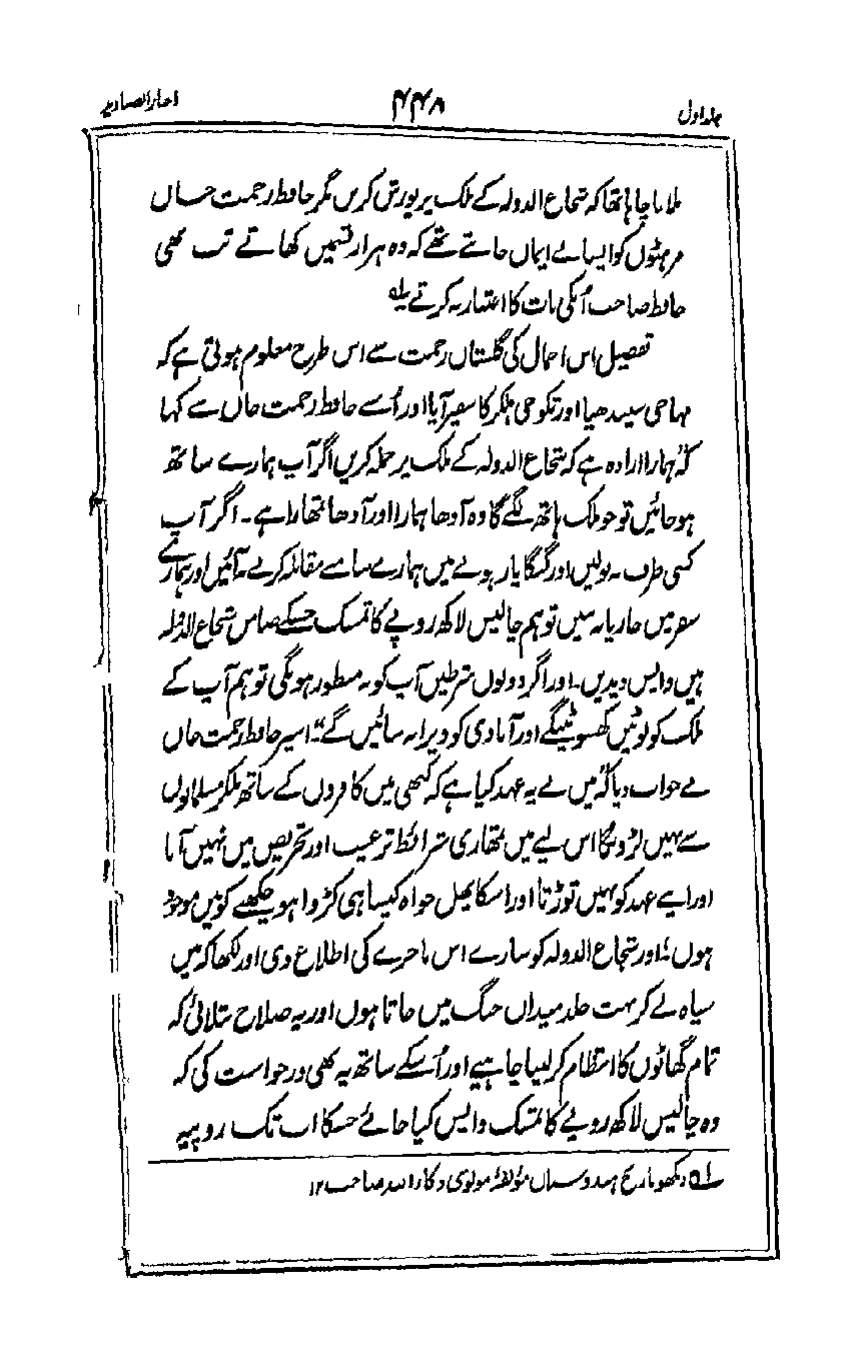 جلد اول ۴۴۸ اخبار الصنادید
ملانا چاہا تھا کہ شجاع الدولہ کے ملک پر یورش کریں مگر حافظ رحمت خاں
مرہٹوں کو ایسا بے ایمان جانتے تھے کہ وہ ہزار قسمیں کھاتے تب بھی
حافظ صاحب اُنکی بات کا اعتبار نہ کرتے ۱؎
تفصیل اس اجمال کی گلستان رحمت سے اس طرح معلوم ہوتی ہے کہ
مہاجی سیندھیا اور تکوجی ہلکر کا سفیر آیا اور اُسنے حافظ رحمت خاں سے کہا
کہ "ہمارا ارادہ ہے کہ شجاع الدولہ کے ملک پر حملہ کریں اگر آپ ہمارے ساتھ
ہو جائیں تو جو ملک ہاتھ لگے گا وہ آدھا ہمارا اور آدھا تمھارا ہے۔ اگر آپ
کسی طرف نہ بولیں اور گنگا پار ہونے میں ہمارے سامنے مقابلہ کرنے نہ آئیں اور ہمارے
سفر میں حارج نہ بنیں تو ہم چالیس لاکھ روپے کا تمسک جسکے ضامن شجاع الدولہ
ہیں واپس دیدیں۔ اور اگر دونوں شرطیں آپ کو نہ منظور ہونگی تو ہم آپ کے
ملک کو لوٹیں کھسوٹیںگے اور آبادی کو ویرانہ بنائیں گے" اسپر حافظ رحمت خاں
نے جواب دیا کہ "میں نے یہ عہد کیا ہے کہ کبھی میں کافروں کے ساتھ ملکر مسلمانوں
سے نہیں لڑونگا اس لیے میں تمھاری شرائط ترغیب اور تحریص میں نہیں آتا
اور اپنے عہد کو نہیں توڑتا اور اسکا پھل خواہ کیسا ہی کڑوا ہو چکھنے کو میں موجود
ہوں" اور شجاع الدولہ کو سارے اس ماجرے کی اطلاع دی اور لکھا کہ میں
سپاہ لے کر بہت جلد میدان جنگ میں جاتا ہوں اور یہ صلاح بتلائی کہ
تمام گھاٹوں کا انتظام کر لینا چاہیے اور اُسکے ساتھ یہ بھی درخواست کی کہ
وہ چالیس لاکھ روپے کا تمسک واپس کیا جائے جسکا اب تک روپیہ
۱؎ دیکھو تاریخ ہندوستان مؤلفۂ مولوی ذکاء اللہ صاحب ۱۲